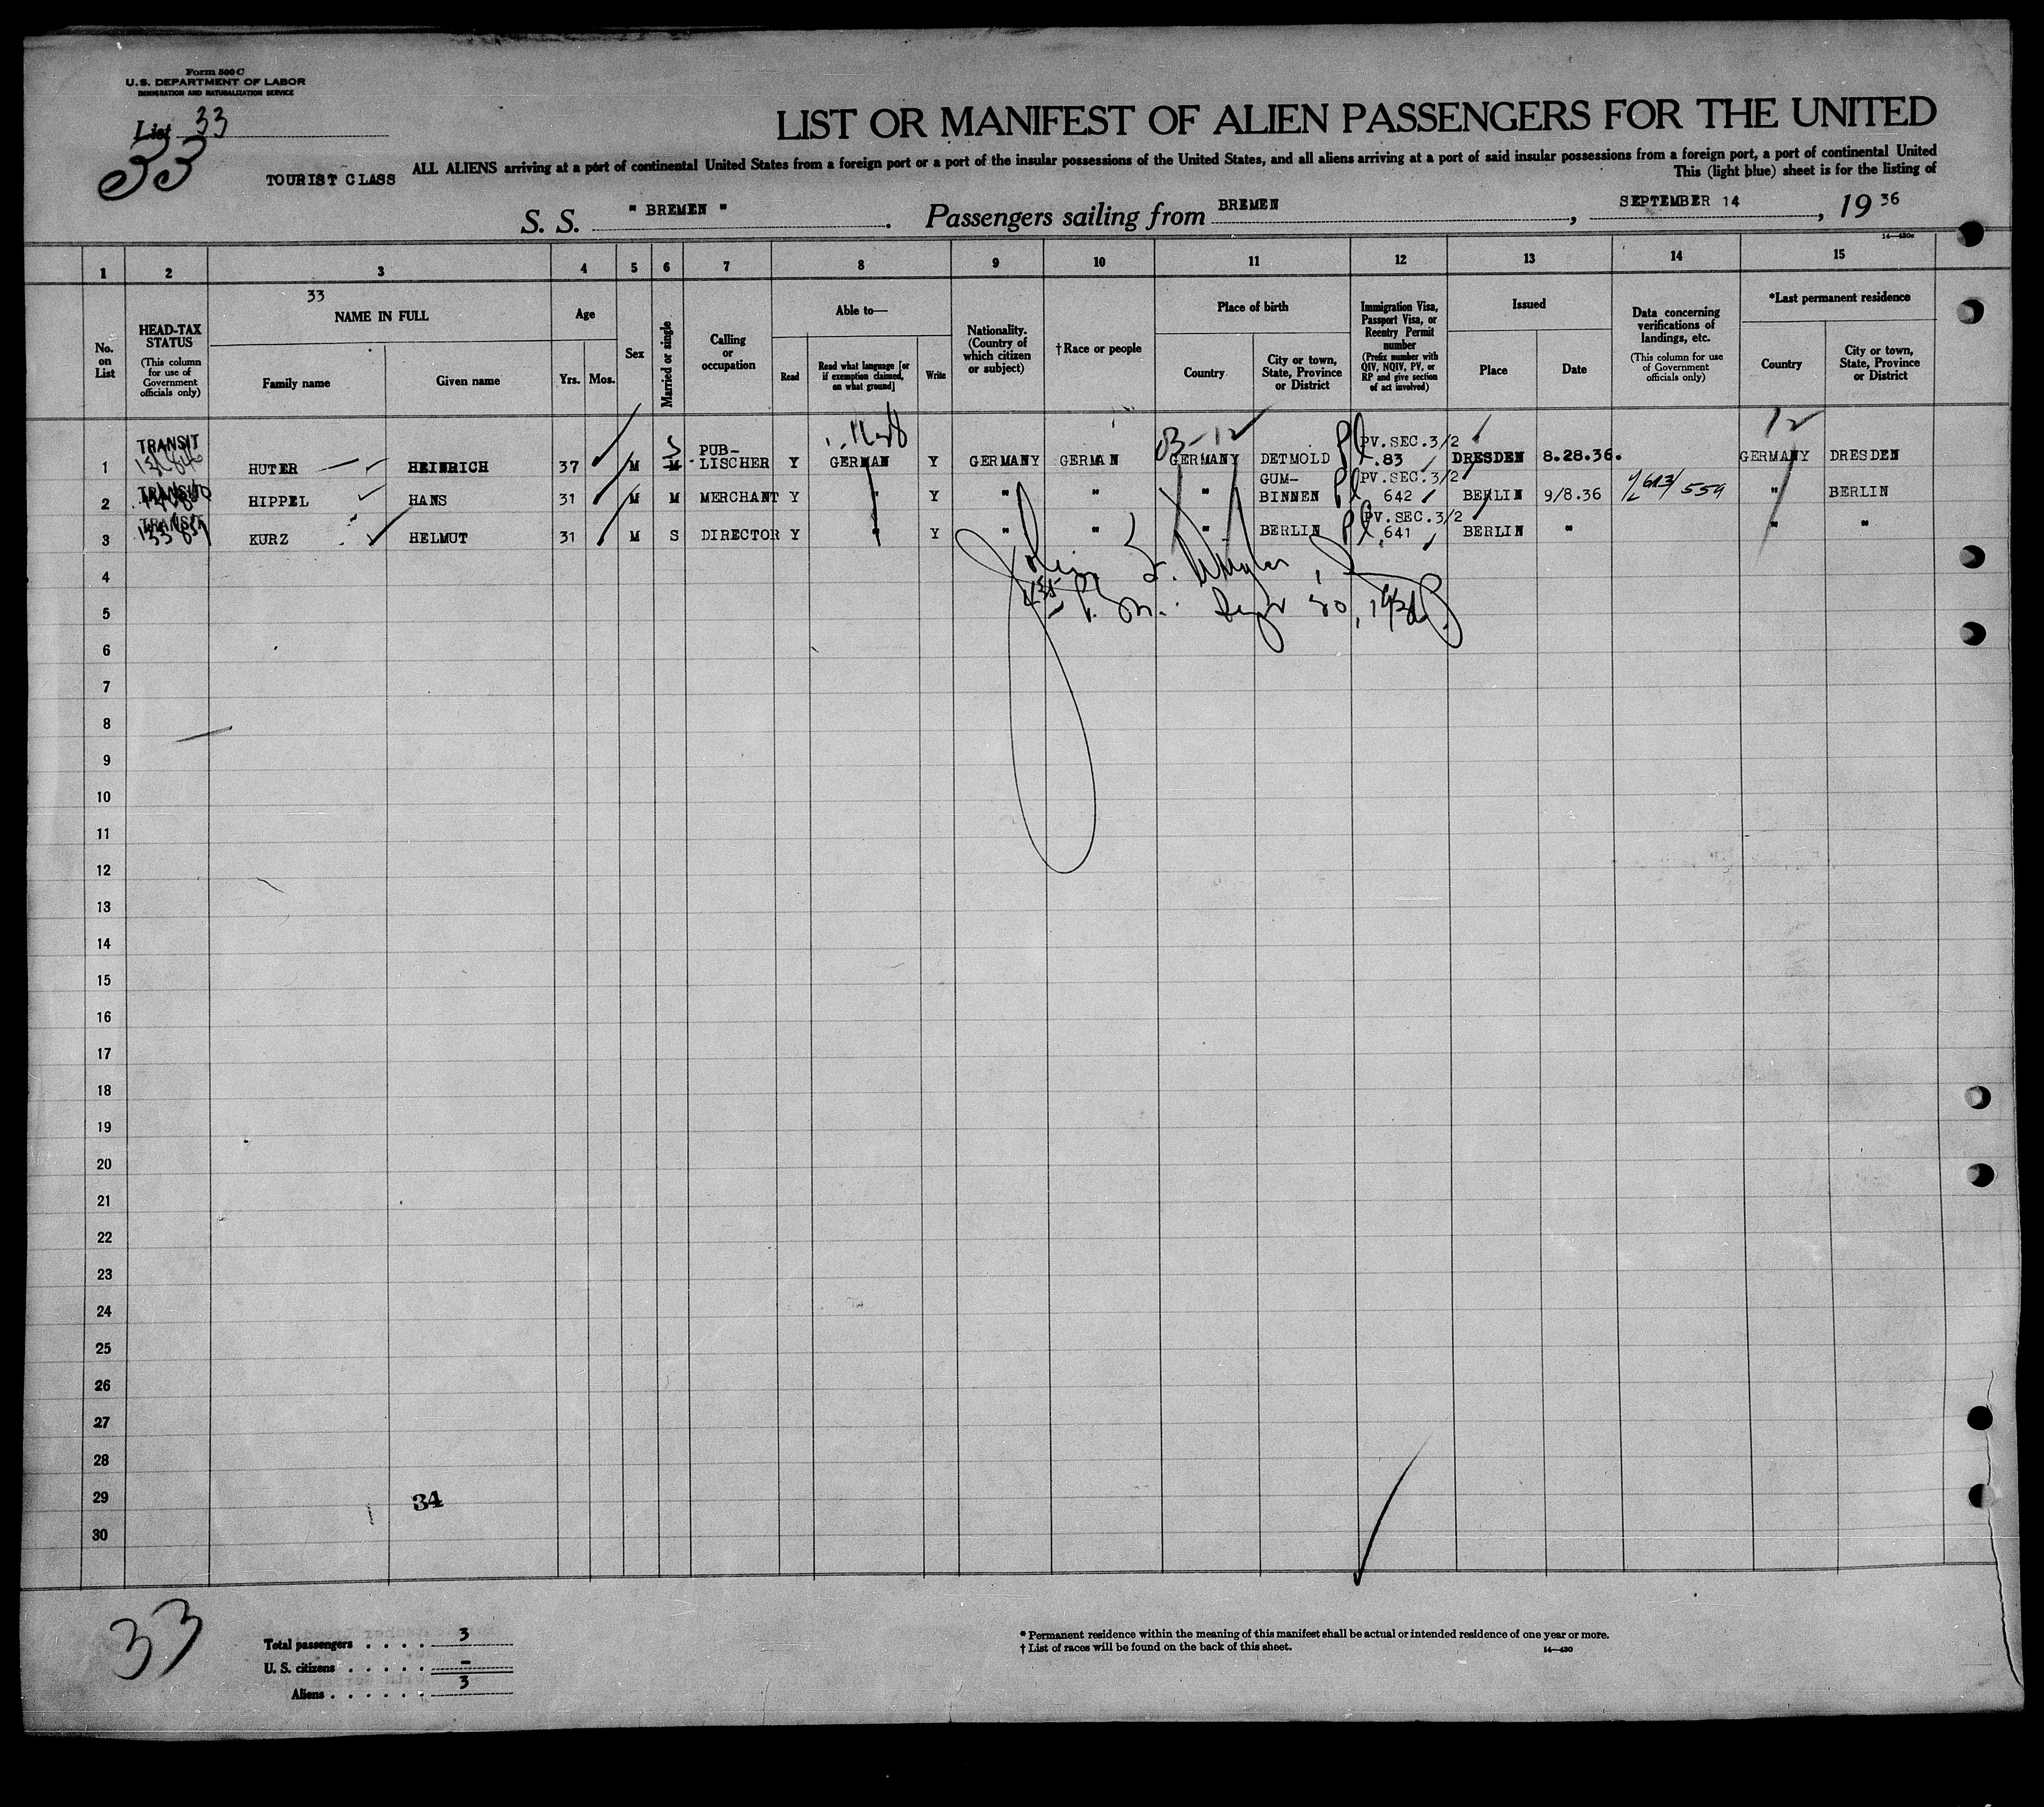 Form 500 C
U. S. DEPARTMENT OF LABOR
IMMIGRATION AND NATURALIZATION SERVICE
List 33
33
LIST OR MANIFEST OF ALIEN PASSENGERS FOR THE UNITED
ALL ALIENS arriving at a port of continental United States from a foreign port or a port of the insular possessions of the United States, and all aliens arriving at a port of said insular possessions from a foreign port, a port of continental United
TOURIST CLASS
This (light blue) sheet is for the listing of
S. S. " BREMEN ". Passengers sailing from BREMEN, SEPTEMBER 14, 19 36
14—430c
1 2 3 4 5 6 7 8 9 10 11 12 13 14 15
No. on List
HEAD-TAX STATUS (This column for use of Government officials only)
33
NAME IN FULL
Family name
Given name
Age
Yrs.
Mos.
Sex
Married or single
Calling or occupation
Able to—
Read
Read what language [or if exemption claimed, on what ground]
Write
Nationality. (Country of which citizen or subject)
† Race or people
Place of birth
Country
City or town, State, Province or District
Immigration Visa, Passport Visa, or Reentry Permit number (Prefix number with QIV, NQIV, PV, or RP and give section of act involved)
Issued
Place
Date
Data concerning verifications of landings, etc. (This column for use of Government officials only)
*Last permanent residence
Country
City or town, State, Province or District
12
1 TRANSIT HUTER HEINRICH 37 M M S PUB-LISCHER Y GERMAN Y GERMANY GERMAN GERMANY DETMOLD PV. SEC. 3/2 .83 DRESDEN 8.28.36. GERMANY DRESDEN
2 TRANSIT HIPPEL HANS 31 M M MERCHANT Y " Y " " " GUM-BINNEN PV. SEC. 3/2 642 BERLIN 9/8.36 " BERLIN
3 TRANSIT KURZ HELMUT 31 M S DIRECTOR Y " Y " " " BERLIN PV. SEC. 3/2 641 BERLIN " " "
4
5
6
7
8
9
10
11
12
13
14
15
16
17
18
19
20
21
22
23
24
25
26
27
28
29
34
30
33
Total passengers . . . . 3
U. S. citizens . . . . . –
Aliens . . . . . . 3
* Permanent residence within the meaning of this manifest shall be actual or intended residence of one year or more.
† List of races will be found on the back of this sheet.
14—430